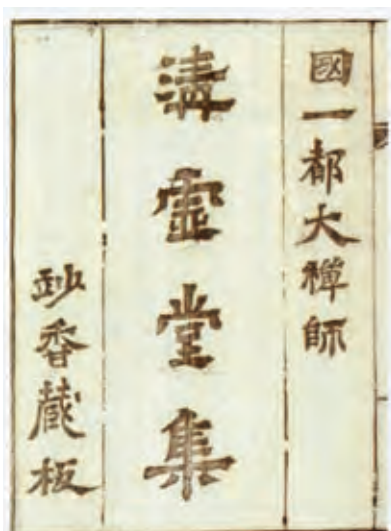 國一都大禪師
清虛堂集
妙香蔵板